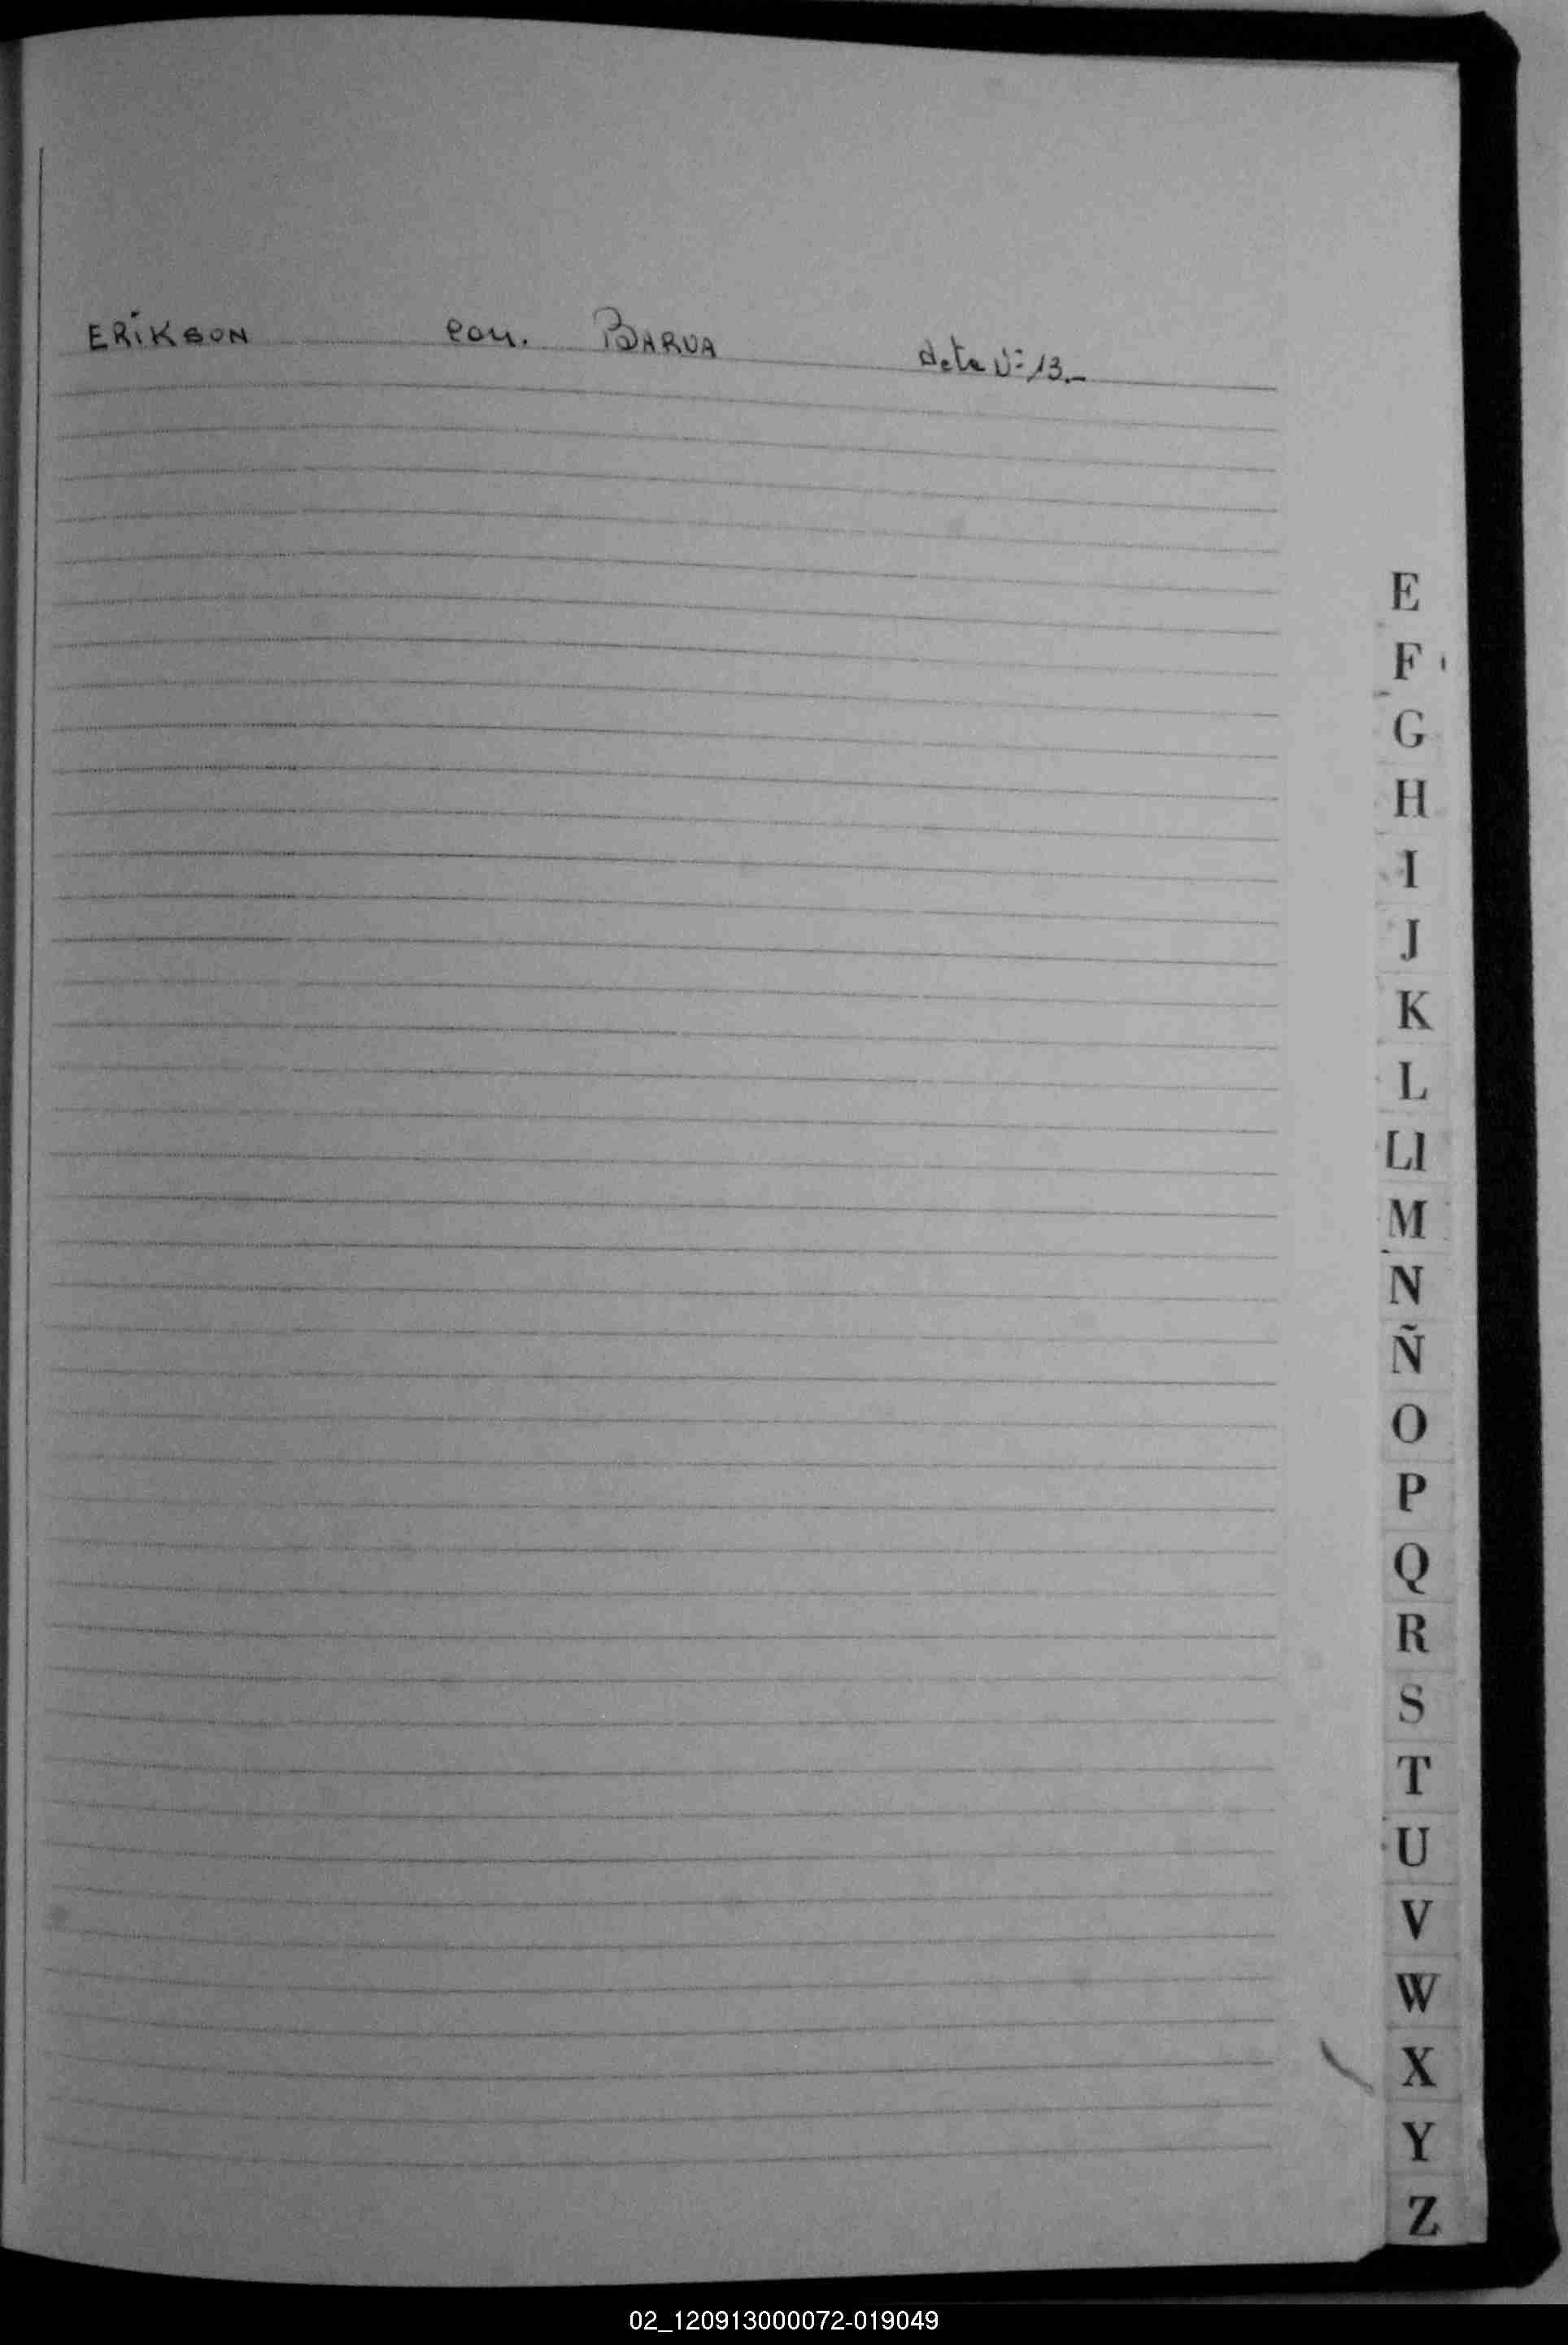 ERIKSON con. BARUA Acta Nº 13.-
E
F
G
H
I
J
K
L
Ll
M
N
Ñ
O
P
Q
R
S
T
U
V
W
X
Y
Z
02_120913000072-019049